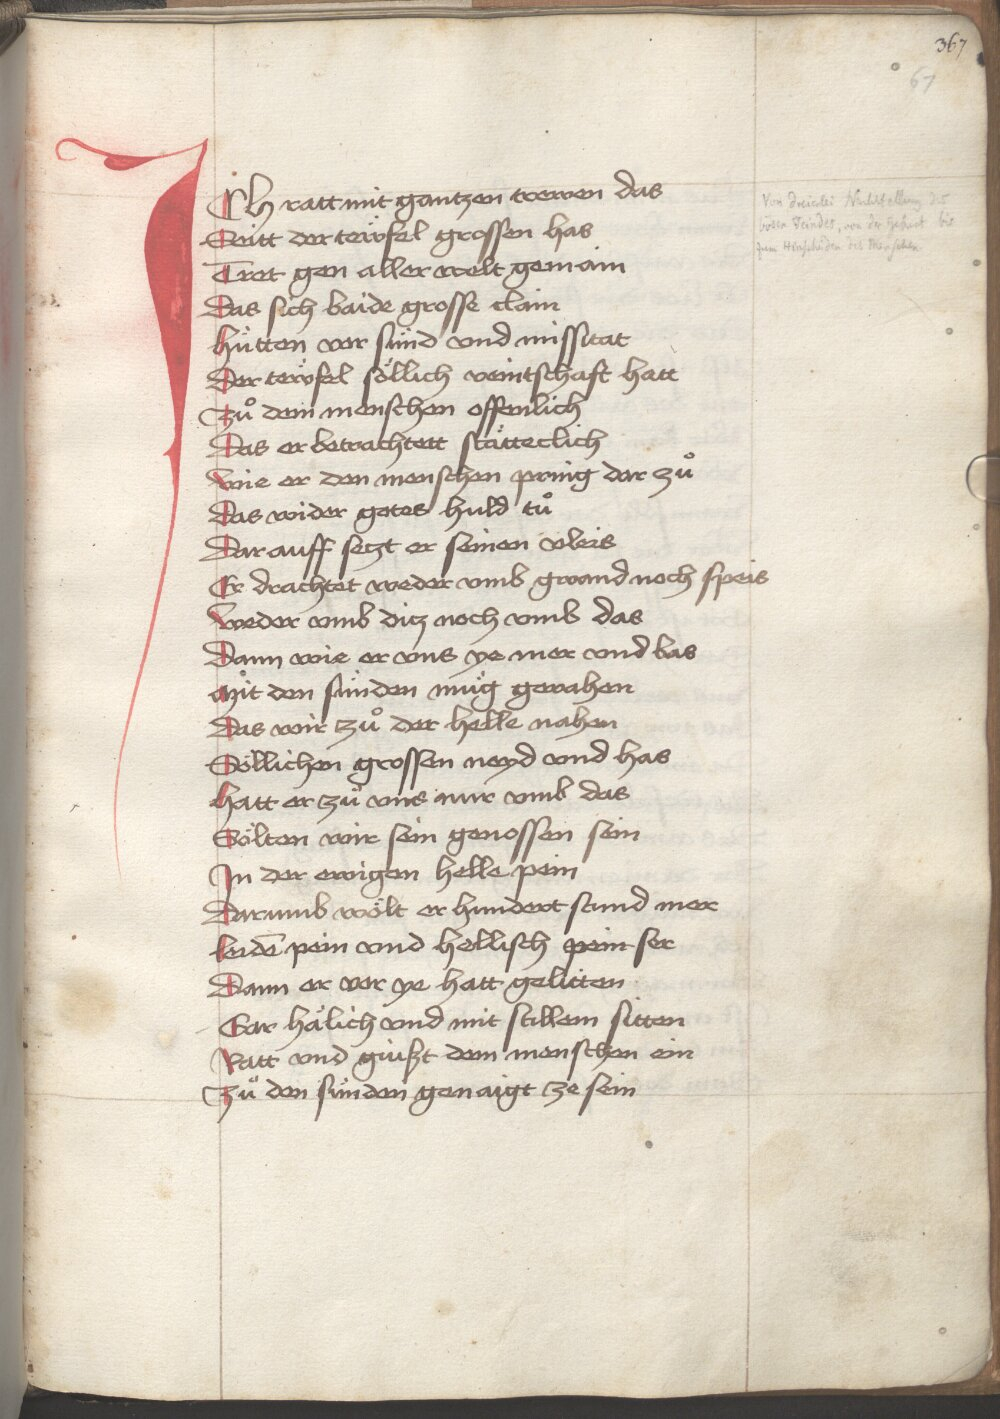 367
67
ICh ratt mit gantzen trewen das
Seitt der teẅfel grossen has
Tret gen aller welt gemain
Das sich baide grosse clain
hütten vor sünd vnd missitat
Der teẅfel söllich veintschaft hatt
Zů dem menschen offenlich
Das er betrachtett stätteclich
wie er den menschen pring dar zů
Das wider gotes huld tů
Dar auff seczt er seinen vleis
Er drachtet weder vmb gwand noch speis
weder vmb ditz noch vmb das
Dann wie er vns ye mer vnd bas
Mit den sünden müg gevahen
Das wir zů der helle nahen
Söllichen grossen neyd vnd has
hatt er zů vns nur vmb das
Sölten wir sein genossen sein
In der ewigen helle pein
Darumb wölt er hundert stund mer
leidē pein vnd hellisch pein ser
Dann er vor ye hatt gelitten
Gar hälich vnd mit stillem sitten
Ratt vnd giußt dem menschen ein
Zů den sünden genaigt ze sein
Von dreierlei Nachstellung des
bösen Feindes, von der Geburt bis
zum Hinscheiden des Menschen